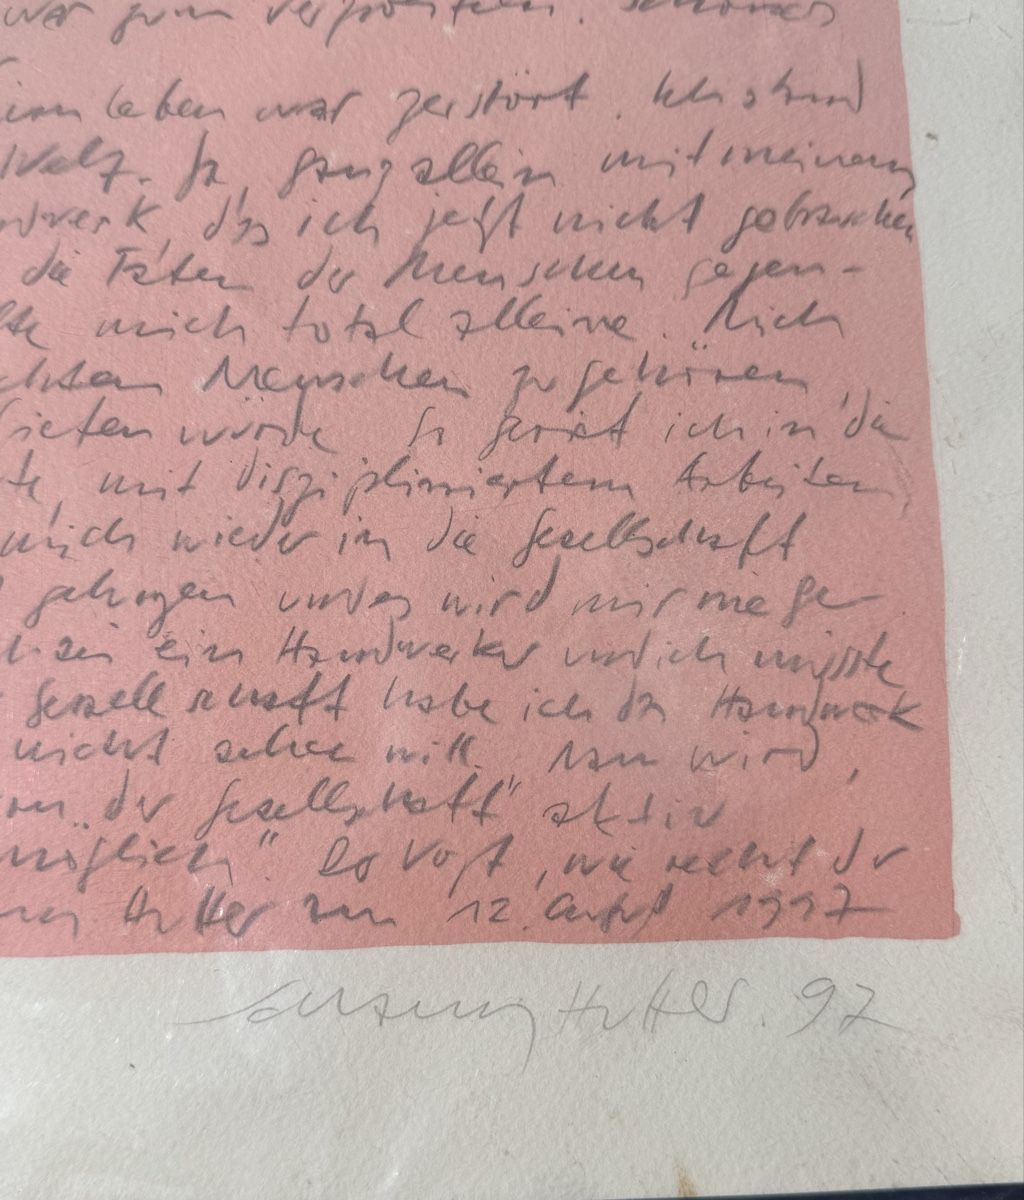 war zum verzweifeln.
Leben war zerstört. Ich stand
Ja, ganz allein mit meinem
das ich jetzt nicht gebrauchen
die Taten der Menschen gegen-
mich total alleine. Mich
Menschen zu gehören
würde So geriet ich in die
mit diszipliniertem Arbeiten
mich wieder in die Gesellschaft
gelungen und es wird mir nie ge-
sei ein Handwerker und ich müsste
Gesellschaft habe ich das Handwerk
nicht sehen will. Man wird,
von der Gesellschaft" aktiv
möglich". So Vogt, wie recht der
Hutter am 12. August 1997
Schang Hutter. 97